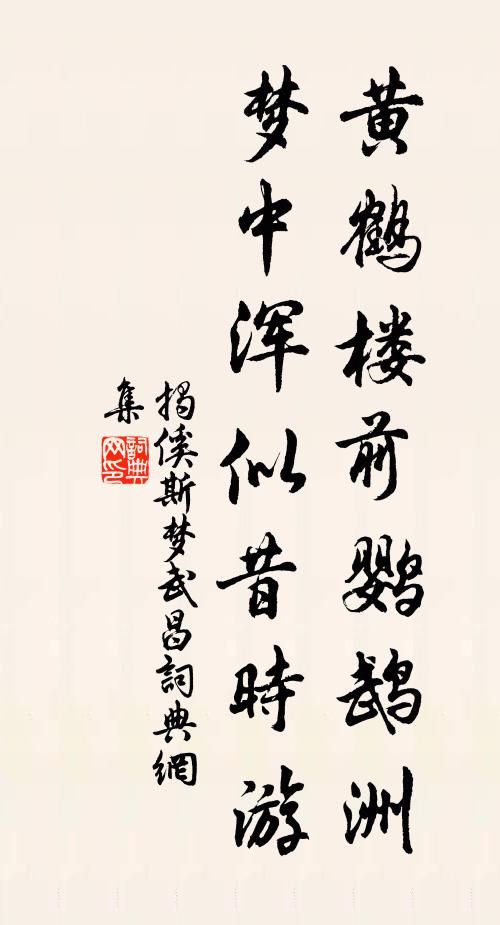 黄鹤楼前鹦鹉洲
梦中浑似昔時游
揭傒斯梦武昌詞典網
集
詞典
网印